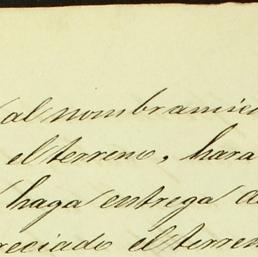 al nombramien
el terreno, hara
haga entrega d
reciado el terren